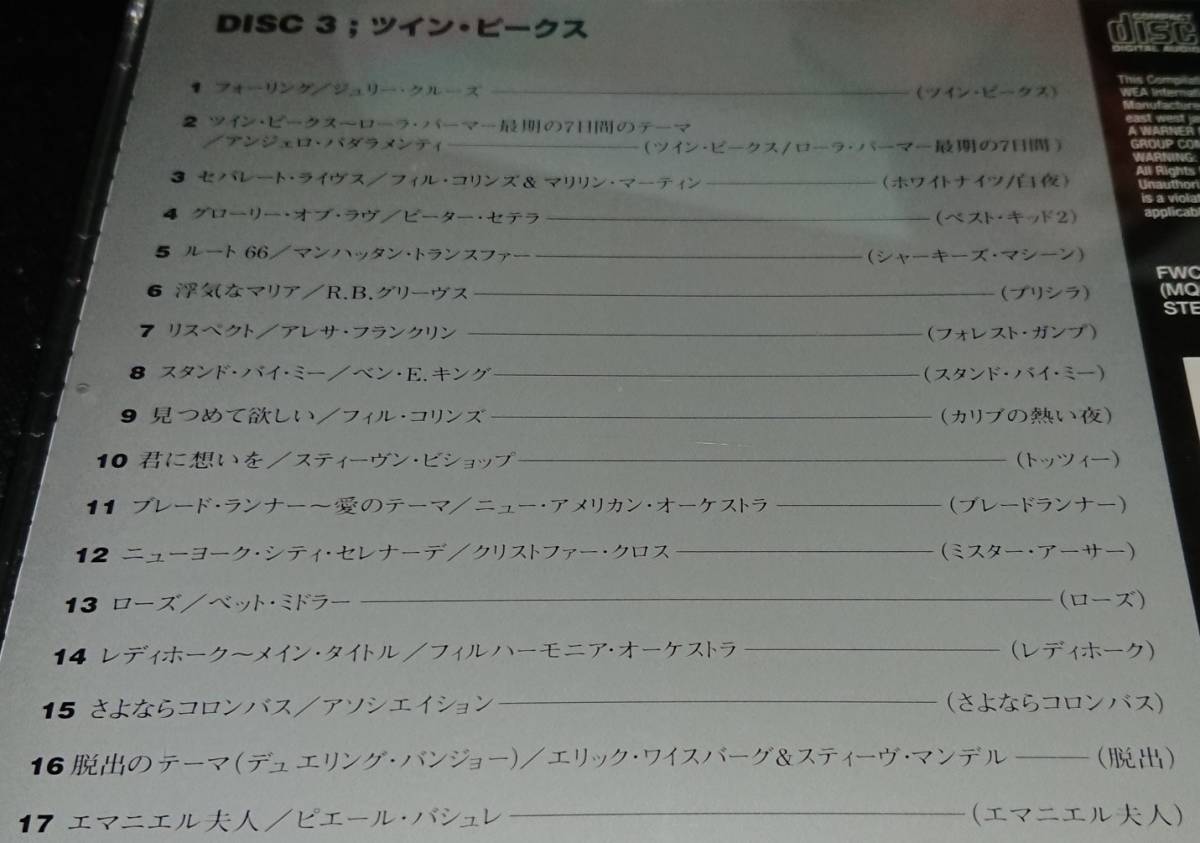 DISC 3 ; ツイン・ピークス
1 フォーリング/ジュリー・クルーズ (ツイン・ピークス)
2 ツイン・ピークス〜ローラ・パーマー最期の7日間のテーマ
/アンジェロ・バダラメンティ (ツイン・ピークス/ローラ・パーマー最期の7日間)
3 セパレート・ライヴス/フィル・コリンズ&マリリン・マーティン (ホワイトナイツ/白夜)
4 グローリー・オブ・ラヴ/ピーター・セテラ (ベスト・キッド2)
5 ルート66/マンハッタン・トランスファー (シャーキーズ・マシーン)
6 浮気なマリア/R.B.グリーヴス (プリシラ)
7 リスペクト/アレサ・フランクリン (フォレスト・ガンプ)
8 スタンド・バイ・ミー/ベン・E.キング (スタンド・バイ・ミー)
9 見つめて欲しい/フィル・コリンズ (カリブの熱い夜)
10 君に想いを/スティーヴン・ビショップ (トッツィー)
11 ブレード・ランナー〜愛のテーマ/ニュー・アメリカン・オーケストラ (ブレードランナー)
12 ニューヨーク・シティ・セレナーデ/クリストファー・クロス (ミスター・アーサー)
13 ローズ/ベット・ミドラー (ローズ)
14 レディホーク〜メイン・タイトル/フィルハーモニア・オーケストラ (レディホーク)
15 さよならコロンバス/アソシエイション (さよならコロンバス)
16 脱出のテーマ(デュエリング・バンジョー)/エリック・ワイスバーグ&スティーヴ・マンデル (脱出)
17 エマニエル夫人/ピエール・バシュレ (エマニエル夫人)
COMPACT
disc
DIGITAL AUDIO
This Compila
WEA Internat
Manufacture
east west ja
A WARNER
GROUP COM
WARNING:
All Rights
Unauthori
is a violat
applicab
FWC
(MQ
STE